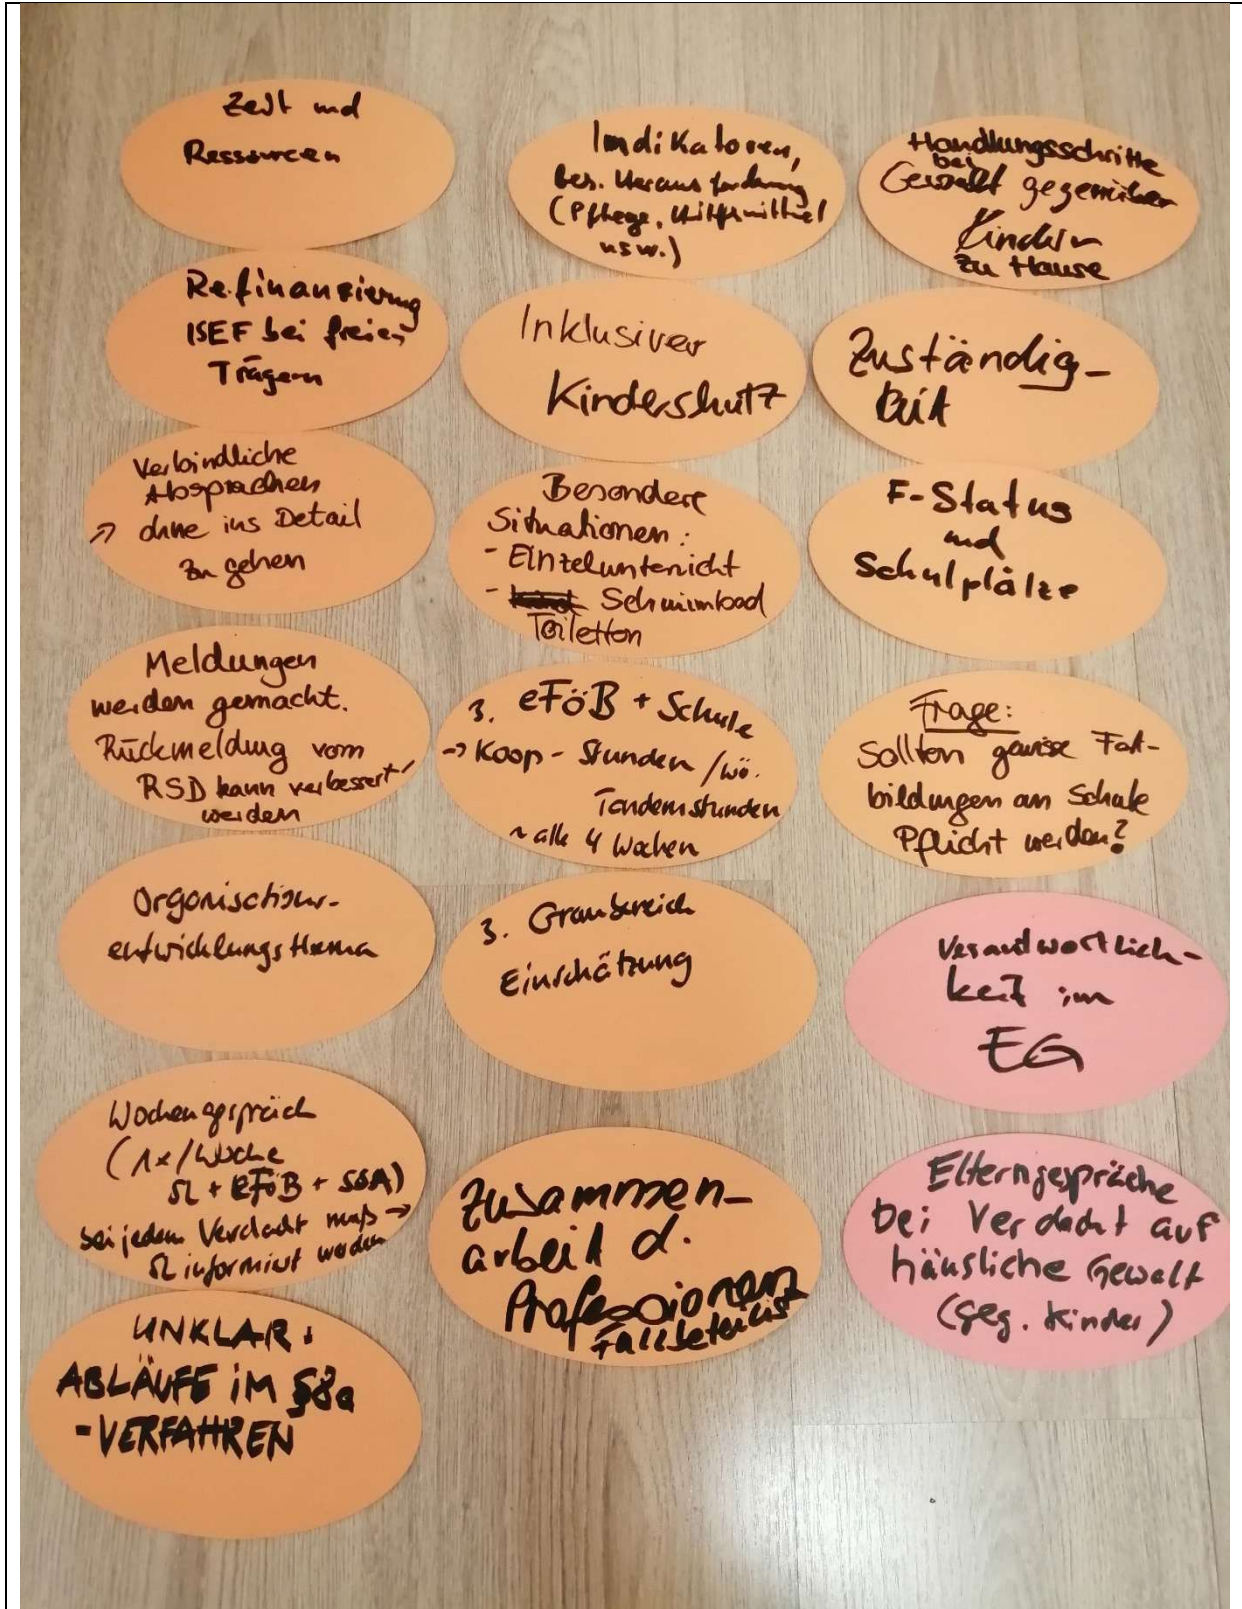 Zeit und
Ressourcen
Refinanzierung
ISEF bei freien
Trägern
Verbindliche
Absprachen
→ ohne ins Detail
zu gehen
Meldungen
werden gemacht.
Rückmeldung vom
RSD kann verbessert
werden
Organisations-
entwicklungsthema
Wochengespräch
(1x/Woche
SL + eFöB + SSA)
bei jedem Verdacht muß →
SL informiert werden
UNKLAR:
ABLÄUFE IM §8a
-VERFAHREN
Indikatoren,
bes. Herausforderung
(Pflege, Hilfsmittel
usw.)
Inklusiver
Kinderschutz
Besondere
Situationen:
- Einzelunterricht
- Schwimmbad
Toiletten
3. eFöB + Schule
→ Koop-Stunden /wö.
Tandemstunden
~ alle 4 Wochen
3. Graubereich
Einschätzung
Zusammen-
arbeit d.
Professionen
Fallbeteiligt
Handlungsschritte
bei
Gewalt gegenüber
Kindern
zu Hause
Zuständig-
keit
F-Status
und
Schulplätze
Frage:
Sollten gewisse Fort-
bildungen an Schule
Pflicht werden?
Verandwortlich-
keit im
EG
Elterngespräche
bei Verdacht auf
häusliche Gewalt
(geg. Kinder)